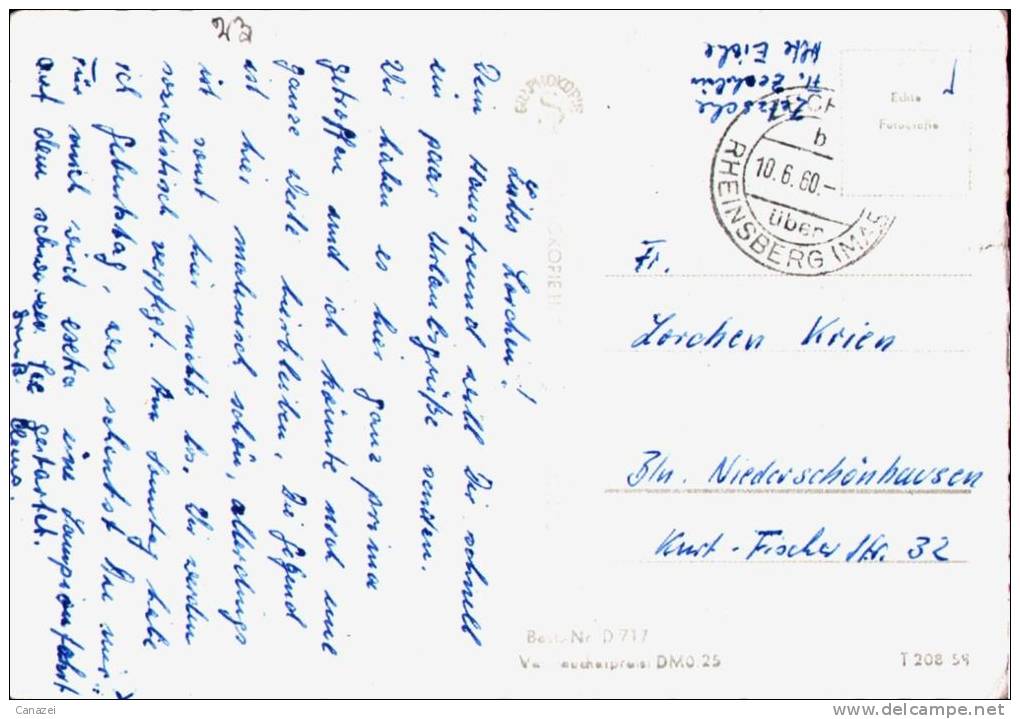 23
Liebes Lorchen!
Dein Hausfreund will Dir schnell
ein paar Urlaubsgrüße senden.
Wir haben es hier ganz prima
getroffen und ich könnte noch eine
ganze Weile hierbleiben. Die Gegend
ist hier malerisch schön, allerdings
ist sonst hier nichts los. Wir werden
sozialistisch verpflegt. Am Sonntag habe
ich Geburtstag, was schenkst Du mir?
Für mich wird extra eine Lampionfahrt
auf dem schwarzen See gestartet.
Gruß
Klaus.
Echte
Fotografie
10.6.60.-
b
über
RHEINSBERG (MARK
Fr.
Lorchen Krien
Bln. Niederschönhausen
Kurt-Fischer Str. 32
Best.-Nr. D 717
Verbraucherpreis: DM 0.25
T 208 59
Canazei
www.delcampe.net